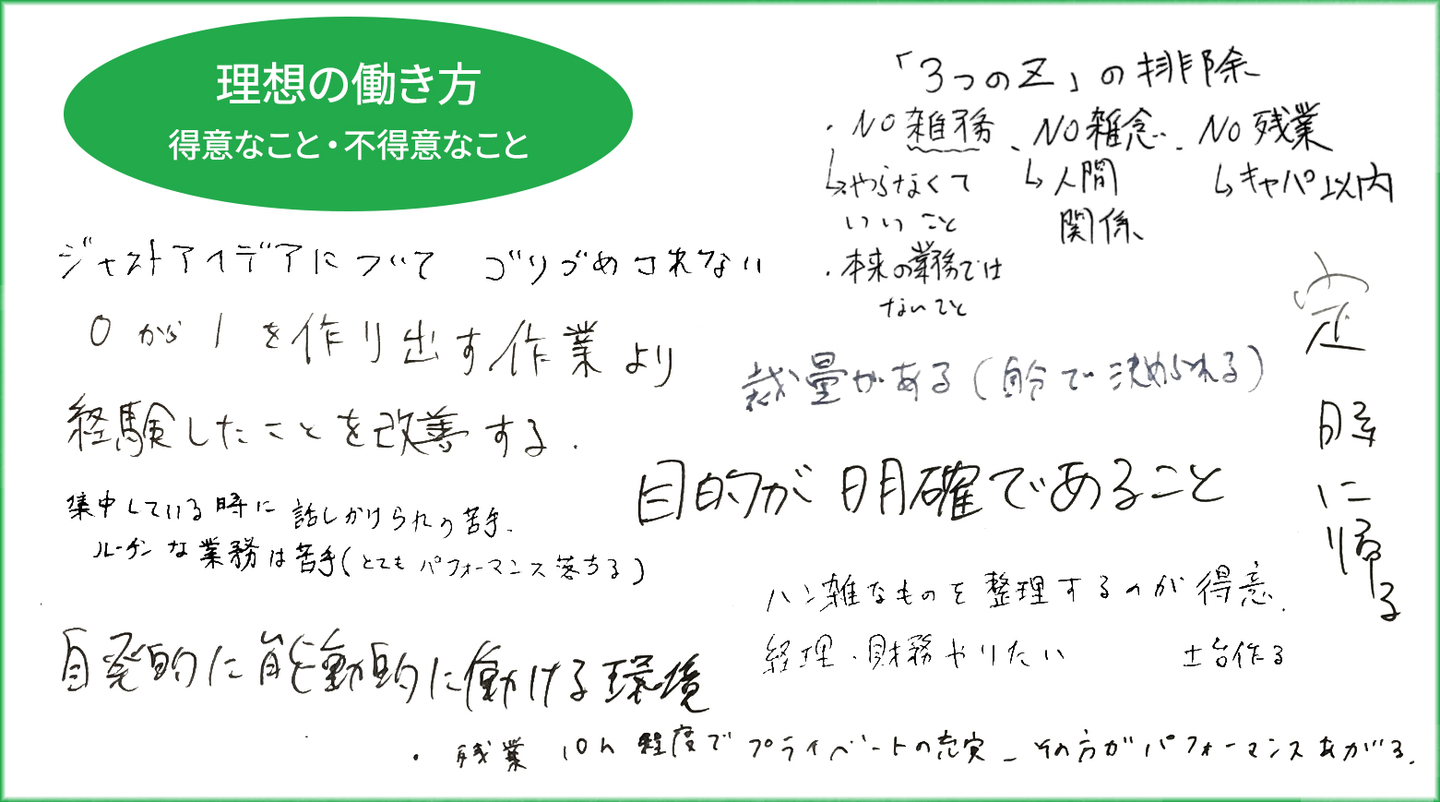 理想の働き方
得意なこと・不得意なこと
「3つのZ」の排除
・NO雑務、NO雑念、NO残業
↳やらなくて
いいこと
・本来の業務では
ないこと
↳人間
関係
↳キャパ以内
ジャストアイデアについて ゴリづめされない
0から1を作り出す作業より
経験したことを改善する.
裁量がある(自分で決められる)
定時に帰る
目的が明確であること
集中している時に話しかけられの苦手.
ルーチンな業務は苦手(とてもパフォーマンス落ちる)
ハン雑なものを整理するのが得意.
経理・財務やりたい 土台作る
自発的に能動的に働ける環境
・残業10h程度でプライベートの充実_その方がパフォーマンスあがる.